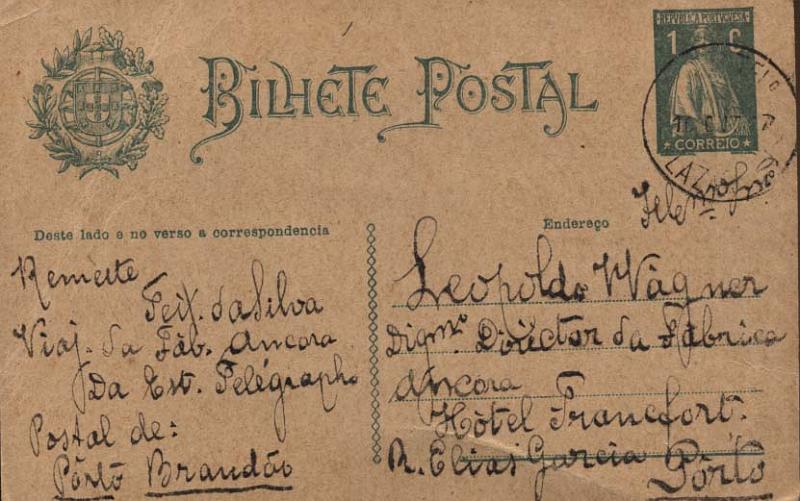 BILHETE POSTAL
REPUBLICA PORTUGUESA
1 C
CORREIO
LAZ
Deste lado e no verso a correspondencia
Remette
Teix. da Silva
Viaj. da Fáb. Ancora
Da Est. Telégrapho
Postal de:
Pôrto Brandão
Endereço
Leopoldo Wágner
Digmº. Director da Fábrica
Âncora
Hôtel Francfort.
R. Elias Garcia
Pôrto